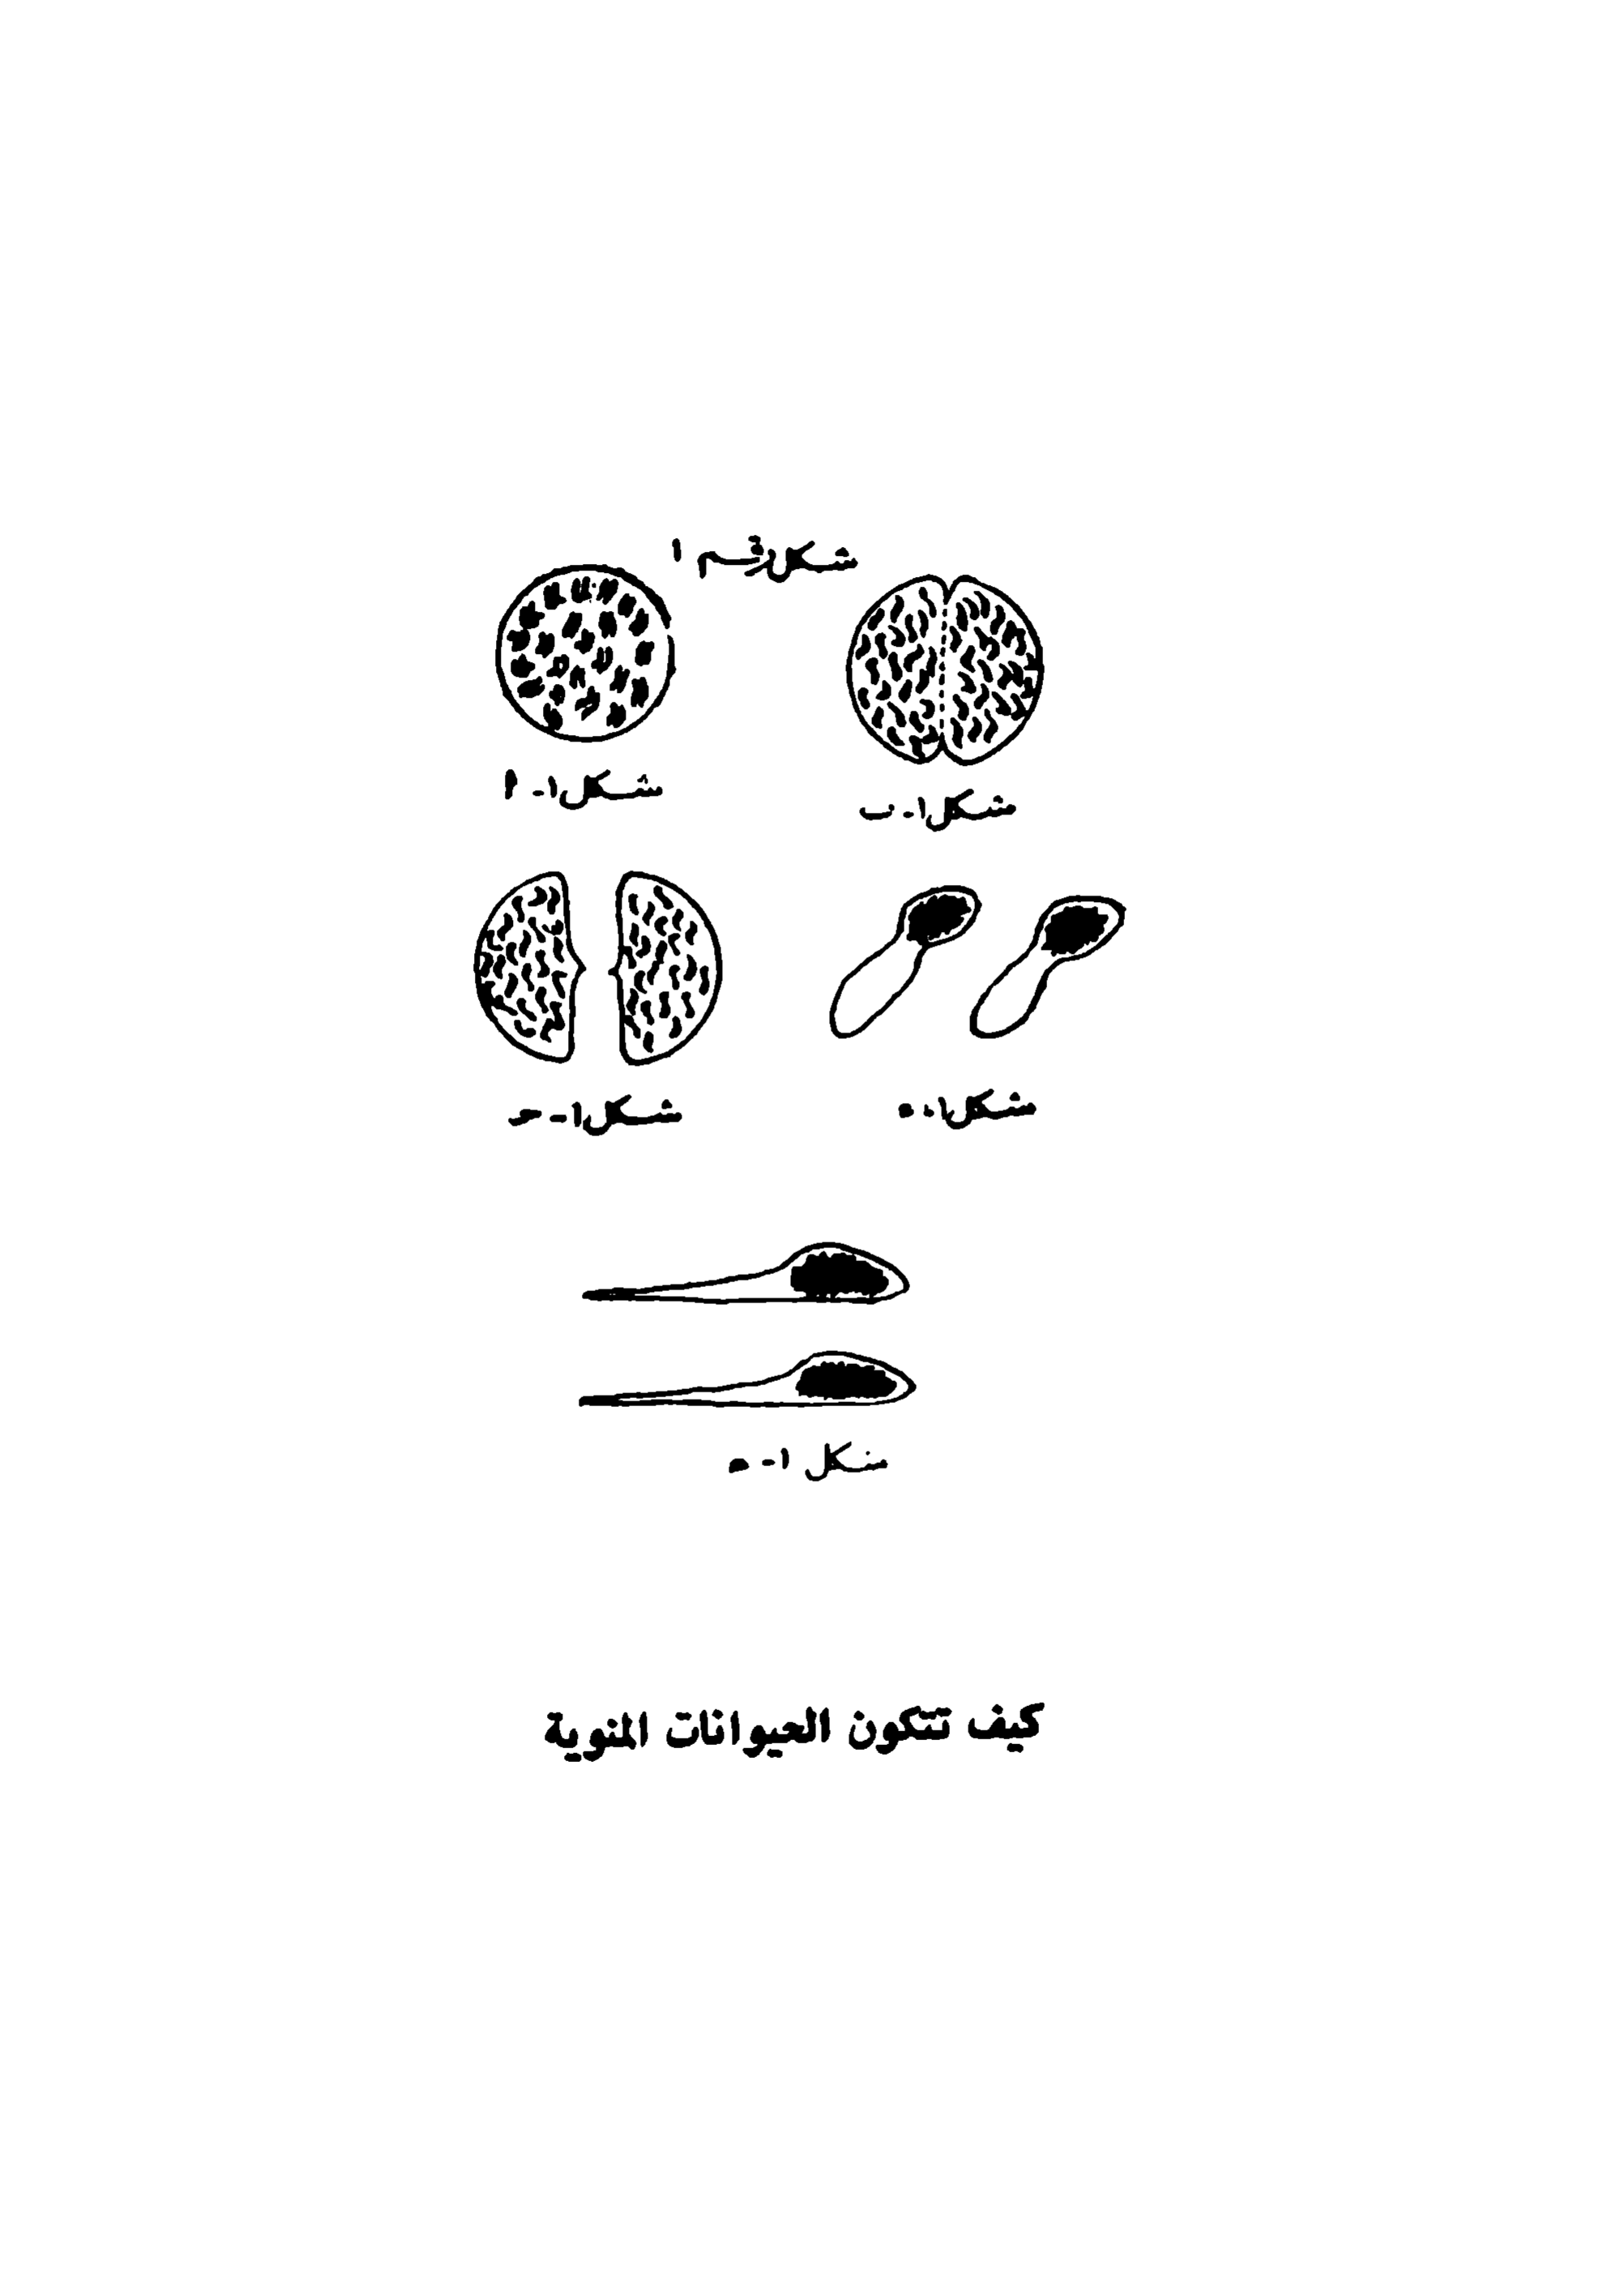 شكل رقم ١
شكل ١ - أ
شكل ١ - ب
شكل ١ - ح
شكل ١ -
شكل ١ - ه
كيف تتكون الحيوانات المنوية